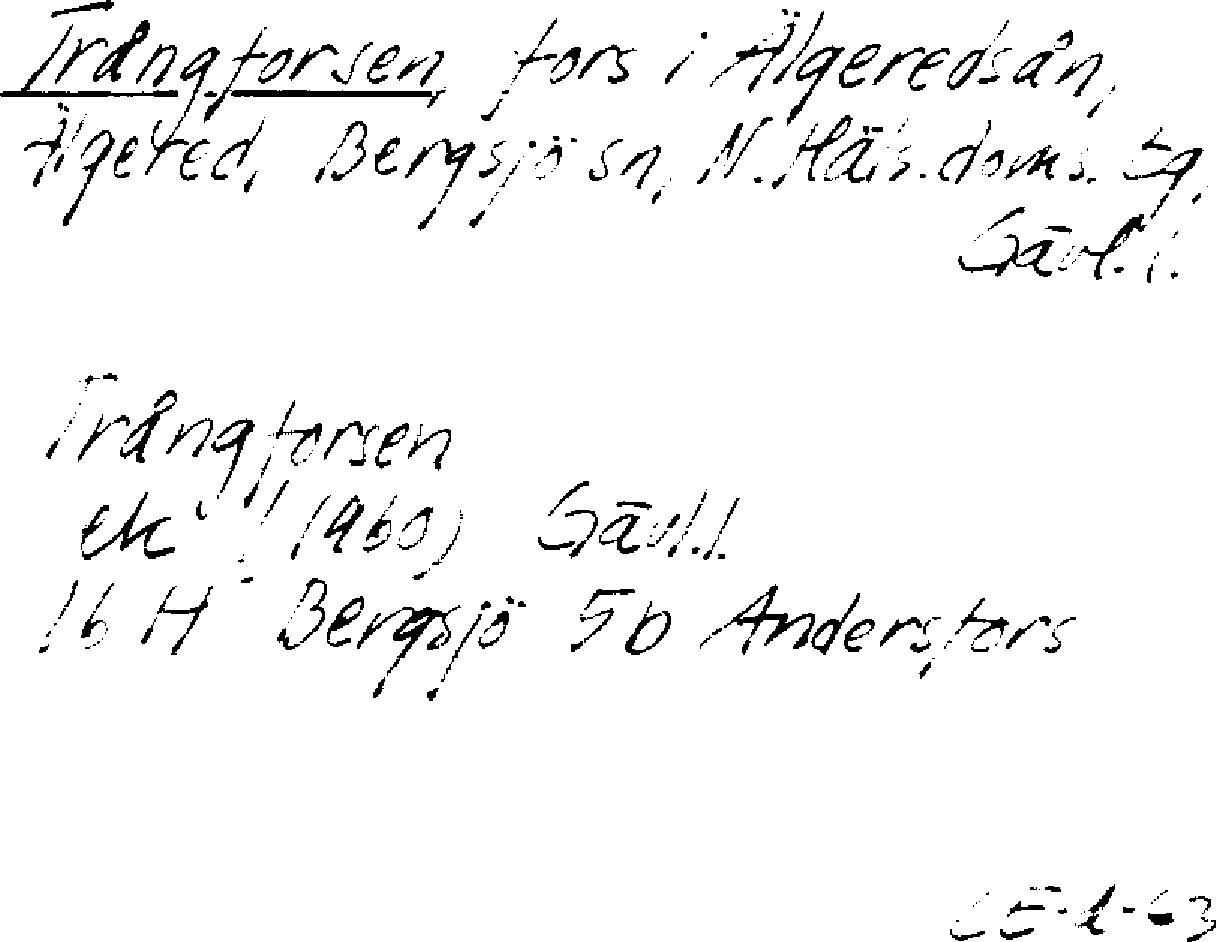 Trångforsen, fors i Älgeredsån,
Älgered, Bergsjö sn, N. Häls. doms. tg,
Gävl. l.
Trångforsen
ek (1960) Gävl. l.
16 H Bergsjö 5b Andersfors